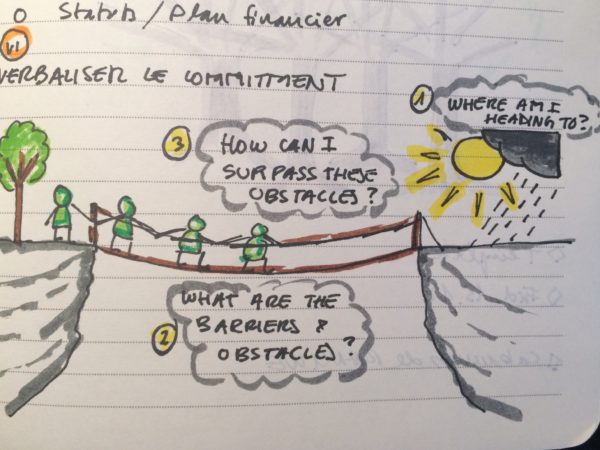 O Statuts / Plan financier
VI
VERBALISER LE COMMITMENT
1
WHERE AM I
HEADING TO?
3
HOW CAN I
SURPASS THESE
OBSTACLES?
WHAT ARE THE
BARRIERS &
OBSTACLES?
2